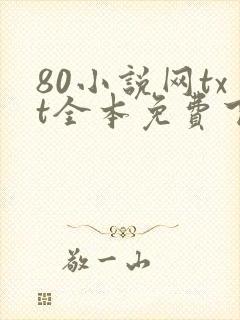 80小説网tx
t全本免費
敬一山